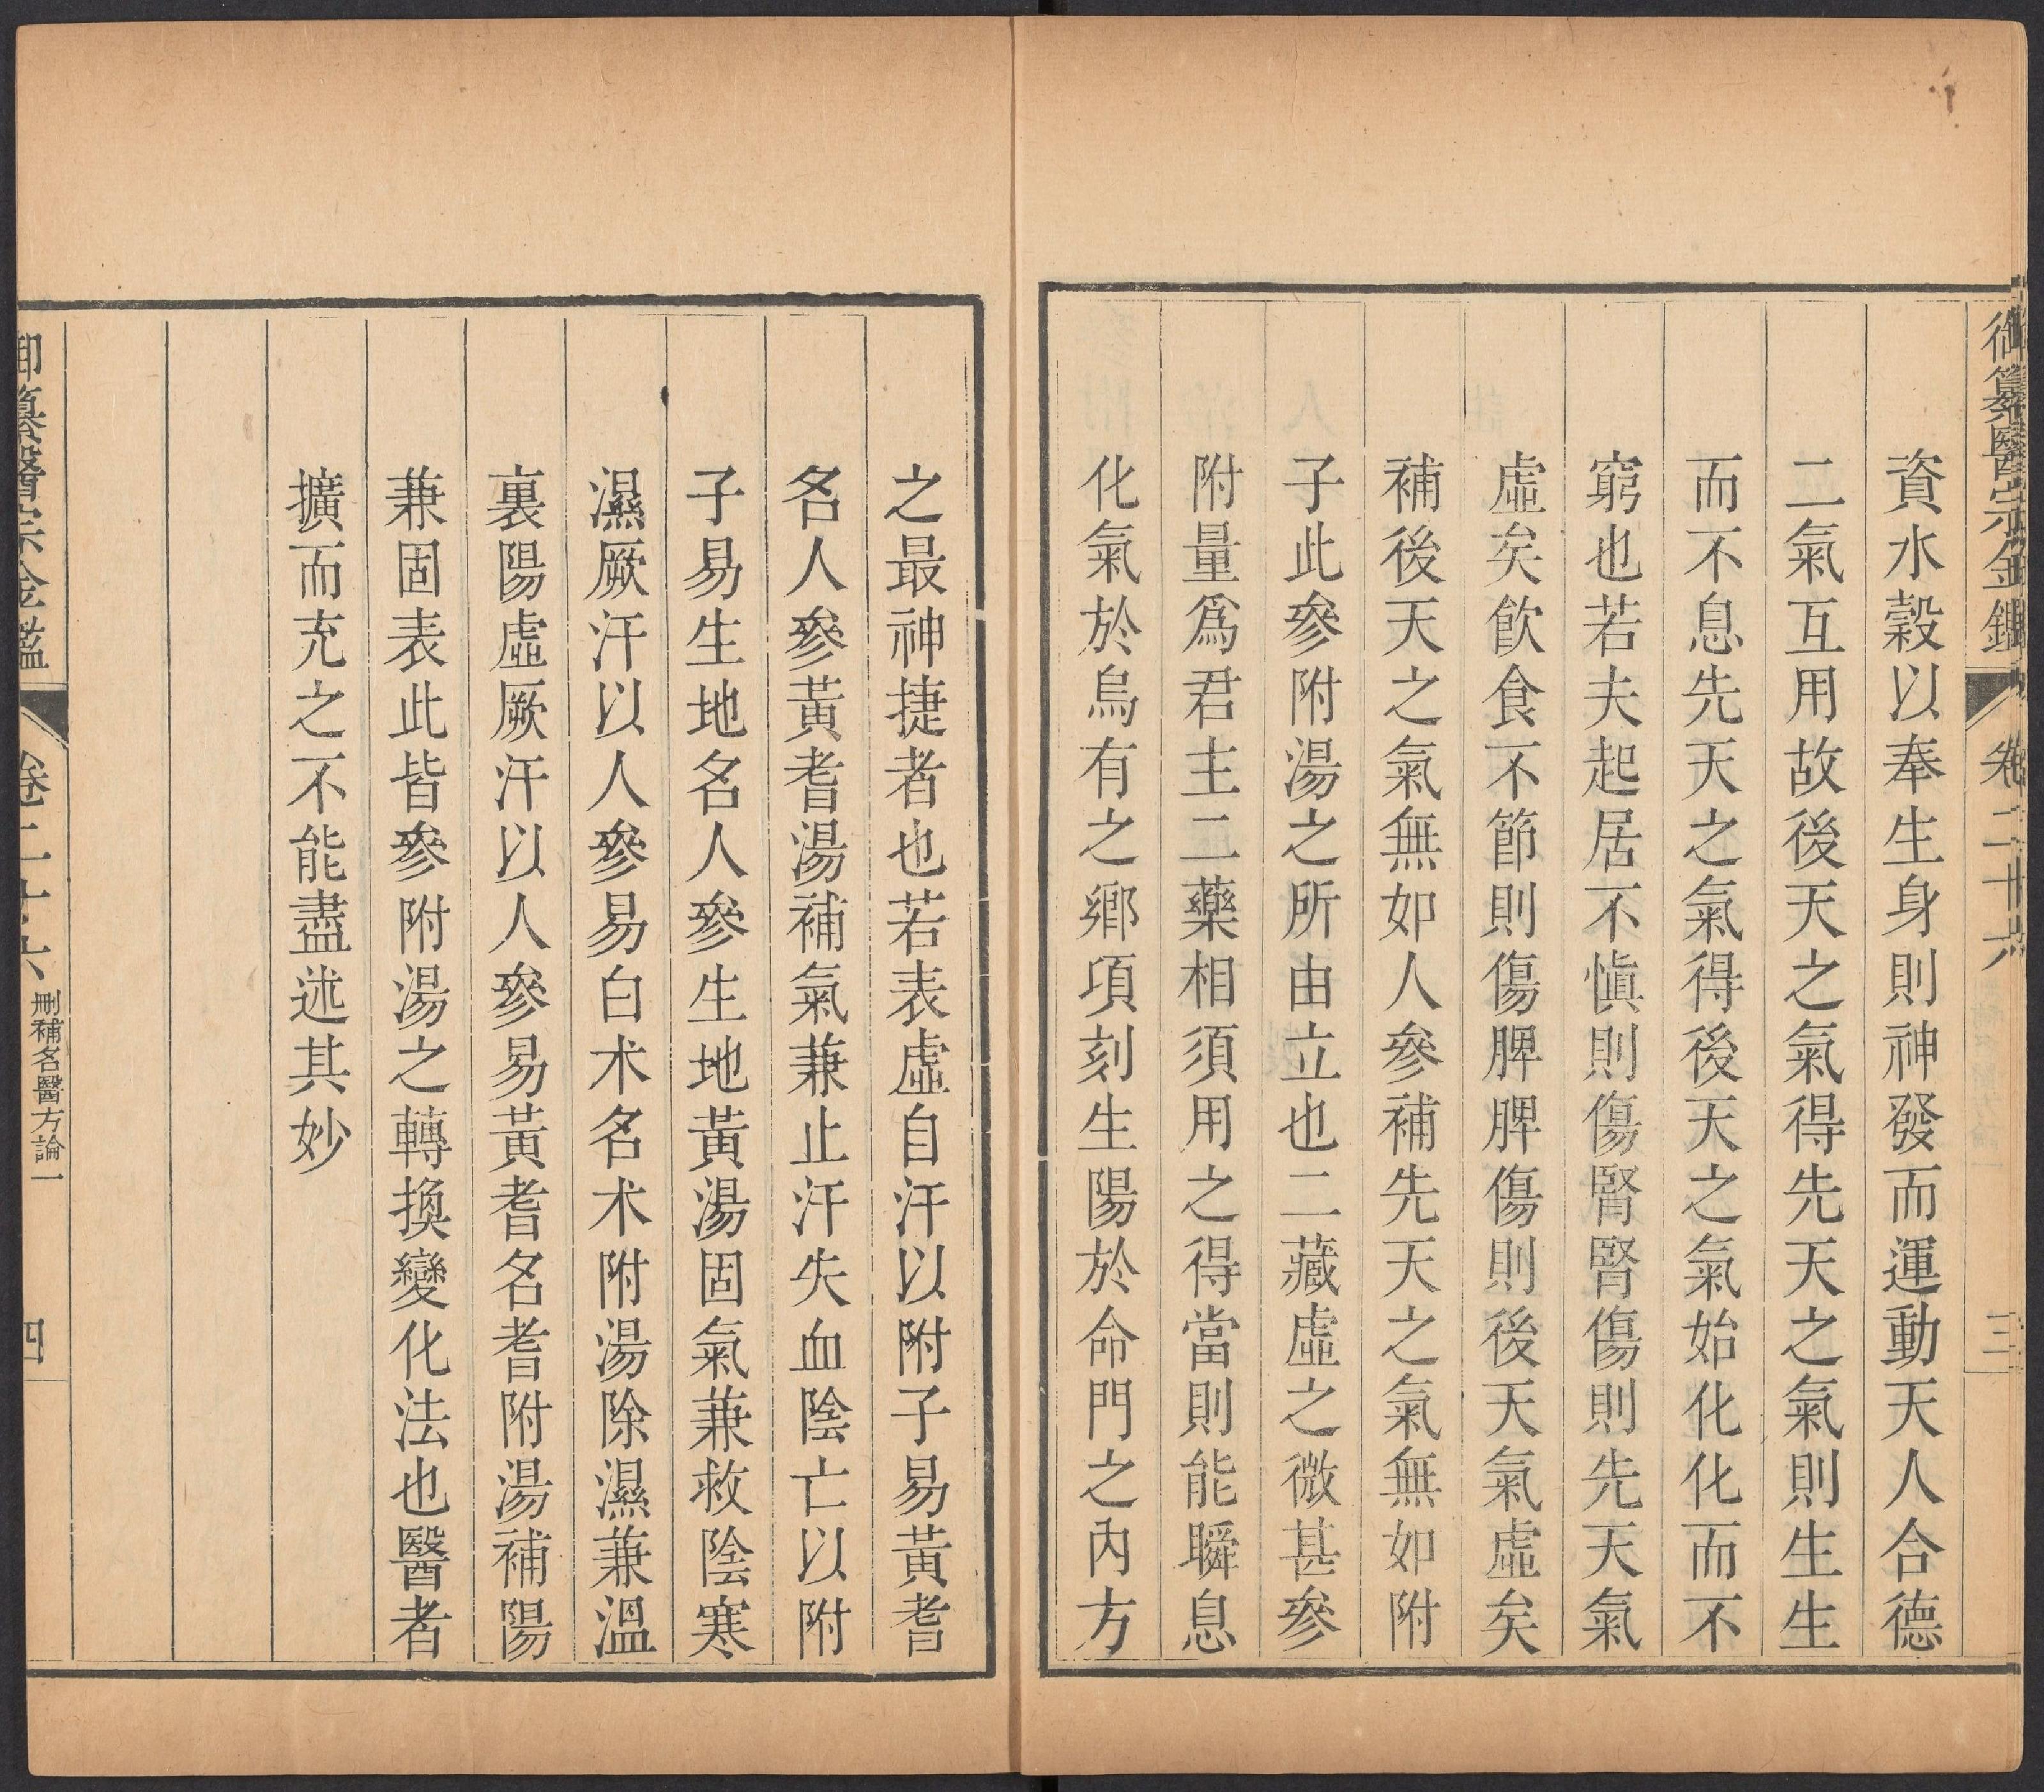 御纂醫宗金鑑 卷二十六 三
資水穀以奉生身則神發而運動天人合德
二氣互用故後天之氣得先天之氣則生生
而不息先天之氣得後天之氣始化化而不
窮也若夫起居不愼則傷腎腎傷則先天氣
虛矣飮食不節則傷脾脾傷則後天氣虛矣
補後天之氣無如人參補先天之氣無如附
子此參附湯之所由立也二藏虛之微甚參
附量爲君主二藥相須用之得當則能瞬息
化氣於烏有之鄉項刻生陽於命門之內方
之最神捷者也若表虛自汗以附子易黃耆
名人參黃耆湯補氣兼止汗失血陰亡以附
子易生地名人參生地黃湯固氣兼救陰寒
濕厥汗以人參易白朮名朮附湯除濕兼溫
裏陽虛厥汗以人參易黃耆名耆附湯補陽
兼固表此皆參附湯之轉換變化法也醫者
擴而充之不能盡述其妙
御纂醫宗金鑑 卷二十六 刪補名醫方論一 四